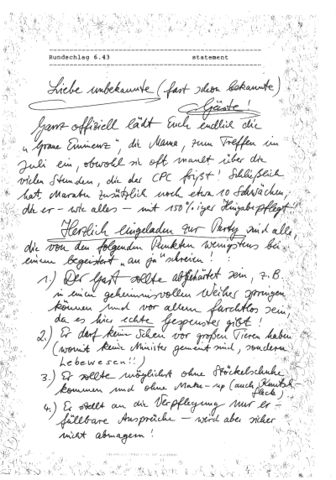 Rundschlag 6.43 statement
Liebe unbekannte (fast schon bekannte)
Gäste!
Ganz offiziell lädt Euch endlich die
"Graue Eminenz", die Mama, zum Treffen im
Juli ein, obwohl sie oft mault über die
vielen Stunden, die der CPC frißt! Schließlich
hat Maratu zusätzlich noch etwa 10 Schwächen,
die er - wie alles - mit 150%iger Hingabe pflegt!
Herzlich eingeladen zur Party sind alle
die von den folgenden Punkten wenigstens bei
einem begeistert "au ja" schreien!
1.) Der Gast sollte abgehärtet sein, z.B.
in einen geheimnisvollen Weiher springen
können und vor allem furchtlos sein,
da es hier echte Gespenster gibt!
2.) Er darf keine Scheu vor großen Tieren haben
(womit keine Minister gemeint sind, sondern
Lebewesen!!)
3.) Er sollte möglichst ohne Stöckelschuhe
kommen und ohne Make-up (auch
4.) Er stellt an die Verpflegung nur er-
füllbare Ansprüche - wird aber sicher
nicht abmagern!